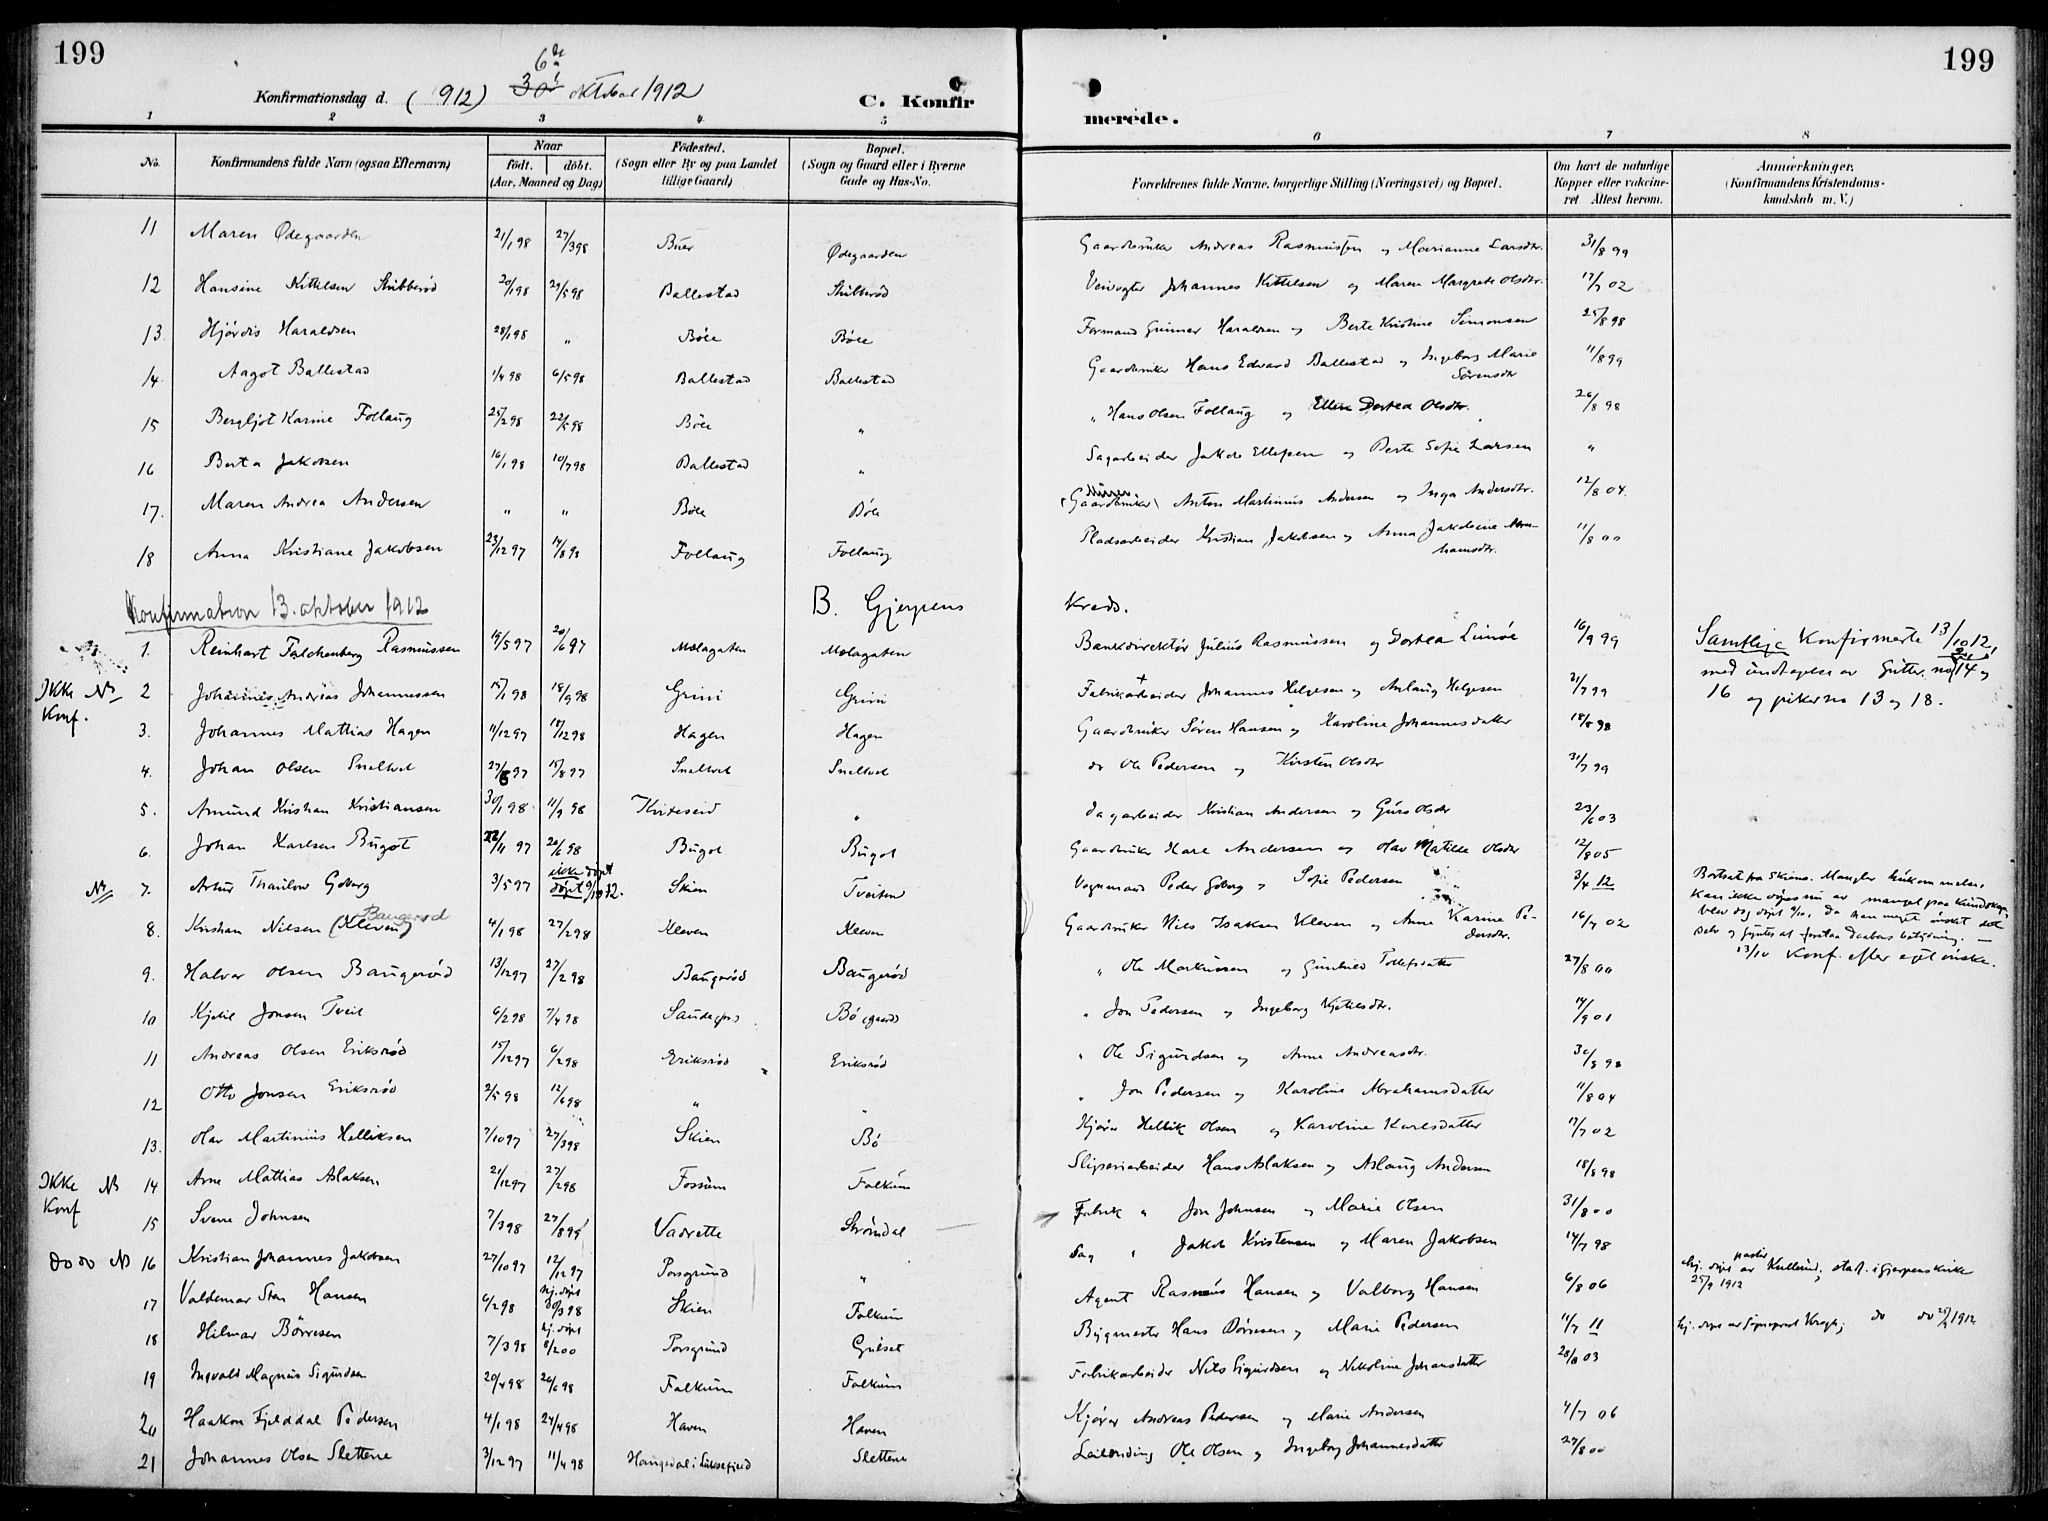 199
199
6te
Konfirmationsdag d. (1912) oktober 1912
C. Konfir
merede.
1 2 3 4 5 6 7 8
No. Konfirmandens fulde Navn (ogsaa Efternavn) Naar født. døbt. (Aar, Maaned og Dag) Fødested. (Sogn eller By og paa Landet tillige Gaard) Bopæl. (Sogn og Gaard eller i Byerne Gade og Hus-No. Forældrenes fulde Navne, borgerlige Stilling (Næringsvei) og Bopæl. Om havt de naturlige Kopper eller vakcineret. Attest herom. Anmærkninger. (Konfirmandens Kristendomskundskab m. V.)
11 Maren Ødegaarden 21/1 98 27/3 98 Buer Ødegaarden Gaardbruker Andreas Rasmussen og Marianne Larsdtr. 31/8 99
12 Hansine Kittilsen Stubberød 20/1 98 29/5 98 Ballestad Stubberød Veivogter Johannes Kittilsen og Maren Margrete Olsdtr. 17/7 02
13. Hjørdis Haraldsen 28/1 98 " Bøle Bøle Formand Gunnar Haraldsen og Berte Kristine Simonsen 25/8 98
14. Aagot Ballestad 1/4 98 6/5 98 Ballestad Ballestad Gaardbruker Hans Edvard Ballestad og Ingeborg Marie Sørensdtr 11/8 99
15 Bergljot Karine Follaug 25/2 98 22/5 98 Bøle " " Hans Olsen Follaug og Ellen Dortea Olsdtr. 26/8 98
16 Berta Jakobsen 16/1 98 10/7 98 Ballestad " Sagarbeider Jakob Ellefsen og Berte Sofie Larsen "
17. Maren Andrea Andersen " " Bøle Bøle (Gaardbruker) Anton Martinius Andersen og Inga Andersdtr. 12/8 04.
18 Anna Kristiane Jakobsen 23/12 97 14/8 98 Follaug Follaug Pladsarbeider Kristian Jakobsen og Anna Jakobine Abrahamsdtr. 11/8 00
Konfirmation 13. oktober 1912 B. Gjerpens Kreds.
1. Reinhart Falchenberg Rasmussen 19/5 97 20/6 97 Mælagaten Mælagaten Bankdirektør Julius Rasmussen og Dortea Limøe 16/9 99 Samtlige Konfirmerte 13/10 12,
Ikke Konf. No 2 Johannes Andreas Johannessen 15/1 98 18/9 98 Grini Grini Fabrikarbeider Johannes Helgesen og Aslaug Helgesen 31/7 99 med undtagelse av Gutter no 2, 14 og
3. Johannes Mattias Hagen 11/12 97 18/12 98 Hagen Hagen Gaardbruker Søren Hansen og Karoline Johannesdatter 18/8 98 16 og piker no 13 og 18.
4. Johan Olsen Sneltvet 27/6 97 15/8 97 Sneltvet Sneltvet do Ole Pedersen og Kirsten Olsdtr 31/7 99
5. Amund Kristian Kristiansen 30/1 98 11/9 98 Kviteseid " Dagarbeider Kristian Andersen og Guro Olsdtr 23/6 03
6. Johan Karlsen Bugot 22/11 97 26/6 98 Bugot Bugot Gaardbruker Karl Andersen og Olav Matilde Olsdtr 12/8 05
No 7. Artur Thaulow Goberg 3/5 97 ikke døpt døpt 9/10 12. Skien Tveiten Vognmand Peder Goberg og Sofie Pedersen 3/4 12 Bortsat fra Skiens. Mangler hukommelse, Kan ikke døpes nu av mangel paa kundskap, blev dog døpt 9/10, da han meget ønsket det selv og syntes at forstaa daabens betydning. — 13/10 Konf. efter eget ønske.
8. Kristian Nielsen (Kleven) Baugerød 4/1 98 27/2 98 Kleven Kleven Gaardbruker Nils Isaksen Kleven og Anne Karine Pedersdtr. 16/7 02
9. Halvor Olsen Baugerød 13/12 97 27/2 98 Baugerød Baugerød " Ole Markussen og Gunhild Tollefsdatter 27/8 00
10 Kjetil Jonsen Tveit 6/2 98 7/4 98 Saude Bø (gaard) " Jon Pedersen og Ingeborg Kjetilsdtr. 14/9 01
11 Andreas Olsen Eriksrød 15/12 97 6/2 98 Eriksrød Eriksrød " Ole Sigurdsen og Anne Andreasdtr. 30/8 98
12 Otto Jonsen Eriksrød 2/5 98 12/6 98 " " " Jon Pedersen og Karoline Abrahamsdatter 11/8 04
13. Olav Martinius Helliksen 7/10 97 27/3 98 Skien Bø Kjører Hellik Olsen og Karoline Karlsdatter 17/7 02
Ikke Konf No 14 Arne Mattias Aslaksen 21/12 97 27/2 98 Fossum Falkum Sliperiarbeider Hans Aslaksen og Aslaug Andersen 18/8 98
15 Sverre Johnsen 7/3 98 27/8 99 Vadrette Strømdal Fabrik " Jon Johnsen og Marie Olsen 31/8 00
do do No 16 Kristian Johannes Jakobsen 27/10 97 12/12 97 Porsgrund " Sag " Jakob Kristensen og Maren Jakobsen 14/7 98
17 Valdemar Sten Hansen 6/2 98 hj. døpt 30/3 98 Skien Falkum Agent Rasmus Hansen og Valborg Hansen 6/8 06 hj. døpt av pastor Kullerud; stadf. i Gjerpens kirke 25/9 1912
18 Hilmar Børresen 7/3 98 hj. døpt 6/2 00 Porsgrund Gulset Bygmester Hans Børresen og Marie Pedersen 11/7 11 hj. døpt av Sogneprest Krogh; do do 29/9 1912
19 Ingvald Magnus Sigurdsen 20/4 98 26/6 98 Falkum Falkum Fabrikarbeider Nils Sigurdsen og Nikoline Johansdatter 28/8 03
20 Haakon Fjelddal Pedersen 4/1 98 24/4 98 Haven Haven Kjører Andreas Pedersen og Marie Andersen 4/7 06
21 Johannes Olsen Slettene 3/12 97 11/4 98 Haugedal i Luksefjeld Slettene Leilending Ole Olsen og Ingeborg Johannesdatter 27/8 00